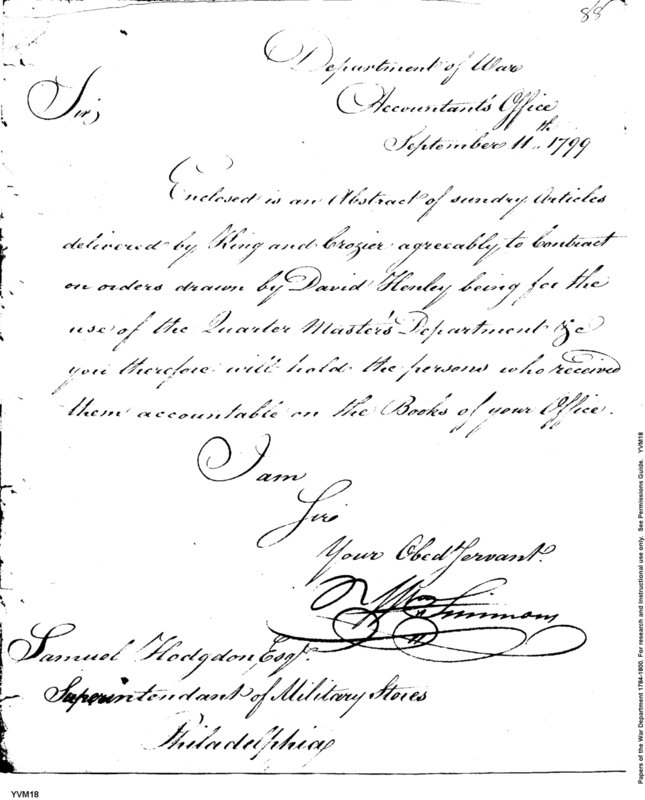 88
Department of War
Accountants Office
September 11th. 1799
Sir,
Enclosed is an Abstract of sundry Articles
delivered by King and Crozier agreeably to Contract
on orders drawn by David Henley being for the
use of the Quarter Master's Department &c
you therefore will hold the persons who received
them accountable on the Books of your Office.
I am
Sir
Your Obed.t Servant.
Wm Simmons
Samuel Hodgdon, Esqr.
Superintendant of Military Stores
Philadelphia
Papers of the War Department 1784-1800. For research and instructional use only. See Permissions Guide. YVM18
YVM18